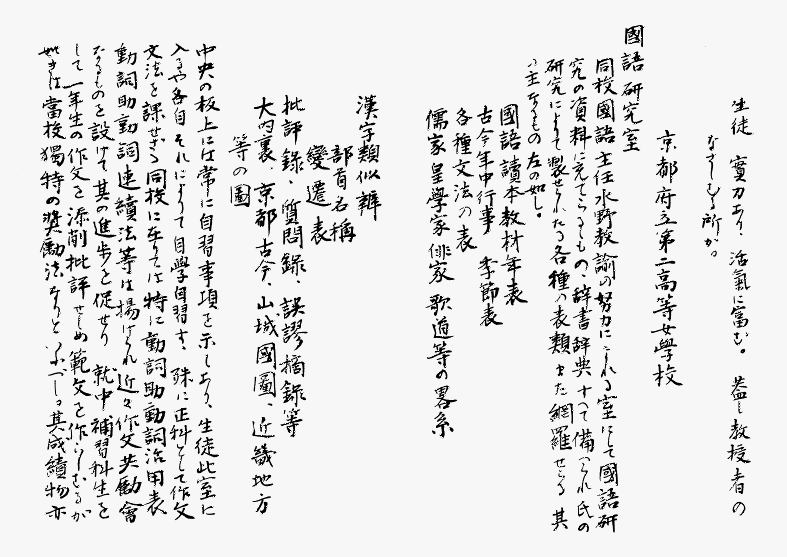 生徒 實力あり、活氣に富む。蓋し教授者の
なさしむる所か。
京都府立第二高等女學校
國語研究室
同校國語主任水野教諭の努力になれる室にして國語研
究の資料に充てらるもの、辞書辞典すべて備へられ氏の
研究によりて製せられたる各種の表類また網羅せらる 其
の主なるもの左の如し。
國語讀本教材年表
古今年中行事 季節表
各種文法の表
儒家皇學家俳家歌道等の畧系
漢字類似辨
部首名稱
變遷表
批評錄、質問錄、誤謬摘錄等
大内裏、京都古今、山城國圖、近畿地方
等の圖
中央の板上には常に自習事項を示しあり、生徒此室に
入るや各自それによりて自學自習す、殊に正科として作文
文法を課せざる同校に在りては特に動詞助動詞活用表
動詞助動詞連續法等は揚げられ近々作文共勵會
なるものを設けて其の進歩を促せり 就中補習科生を
して一年生の作文を添削批評せしめ範文を作らしむるが
如きは當校獨特の奬勵法なりといふべし。其成績物亦